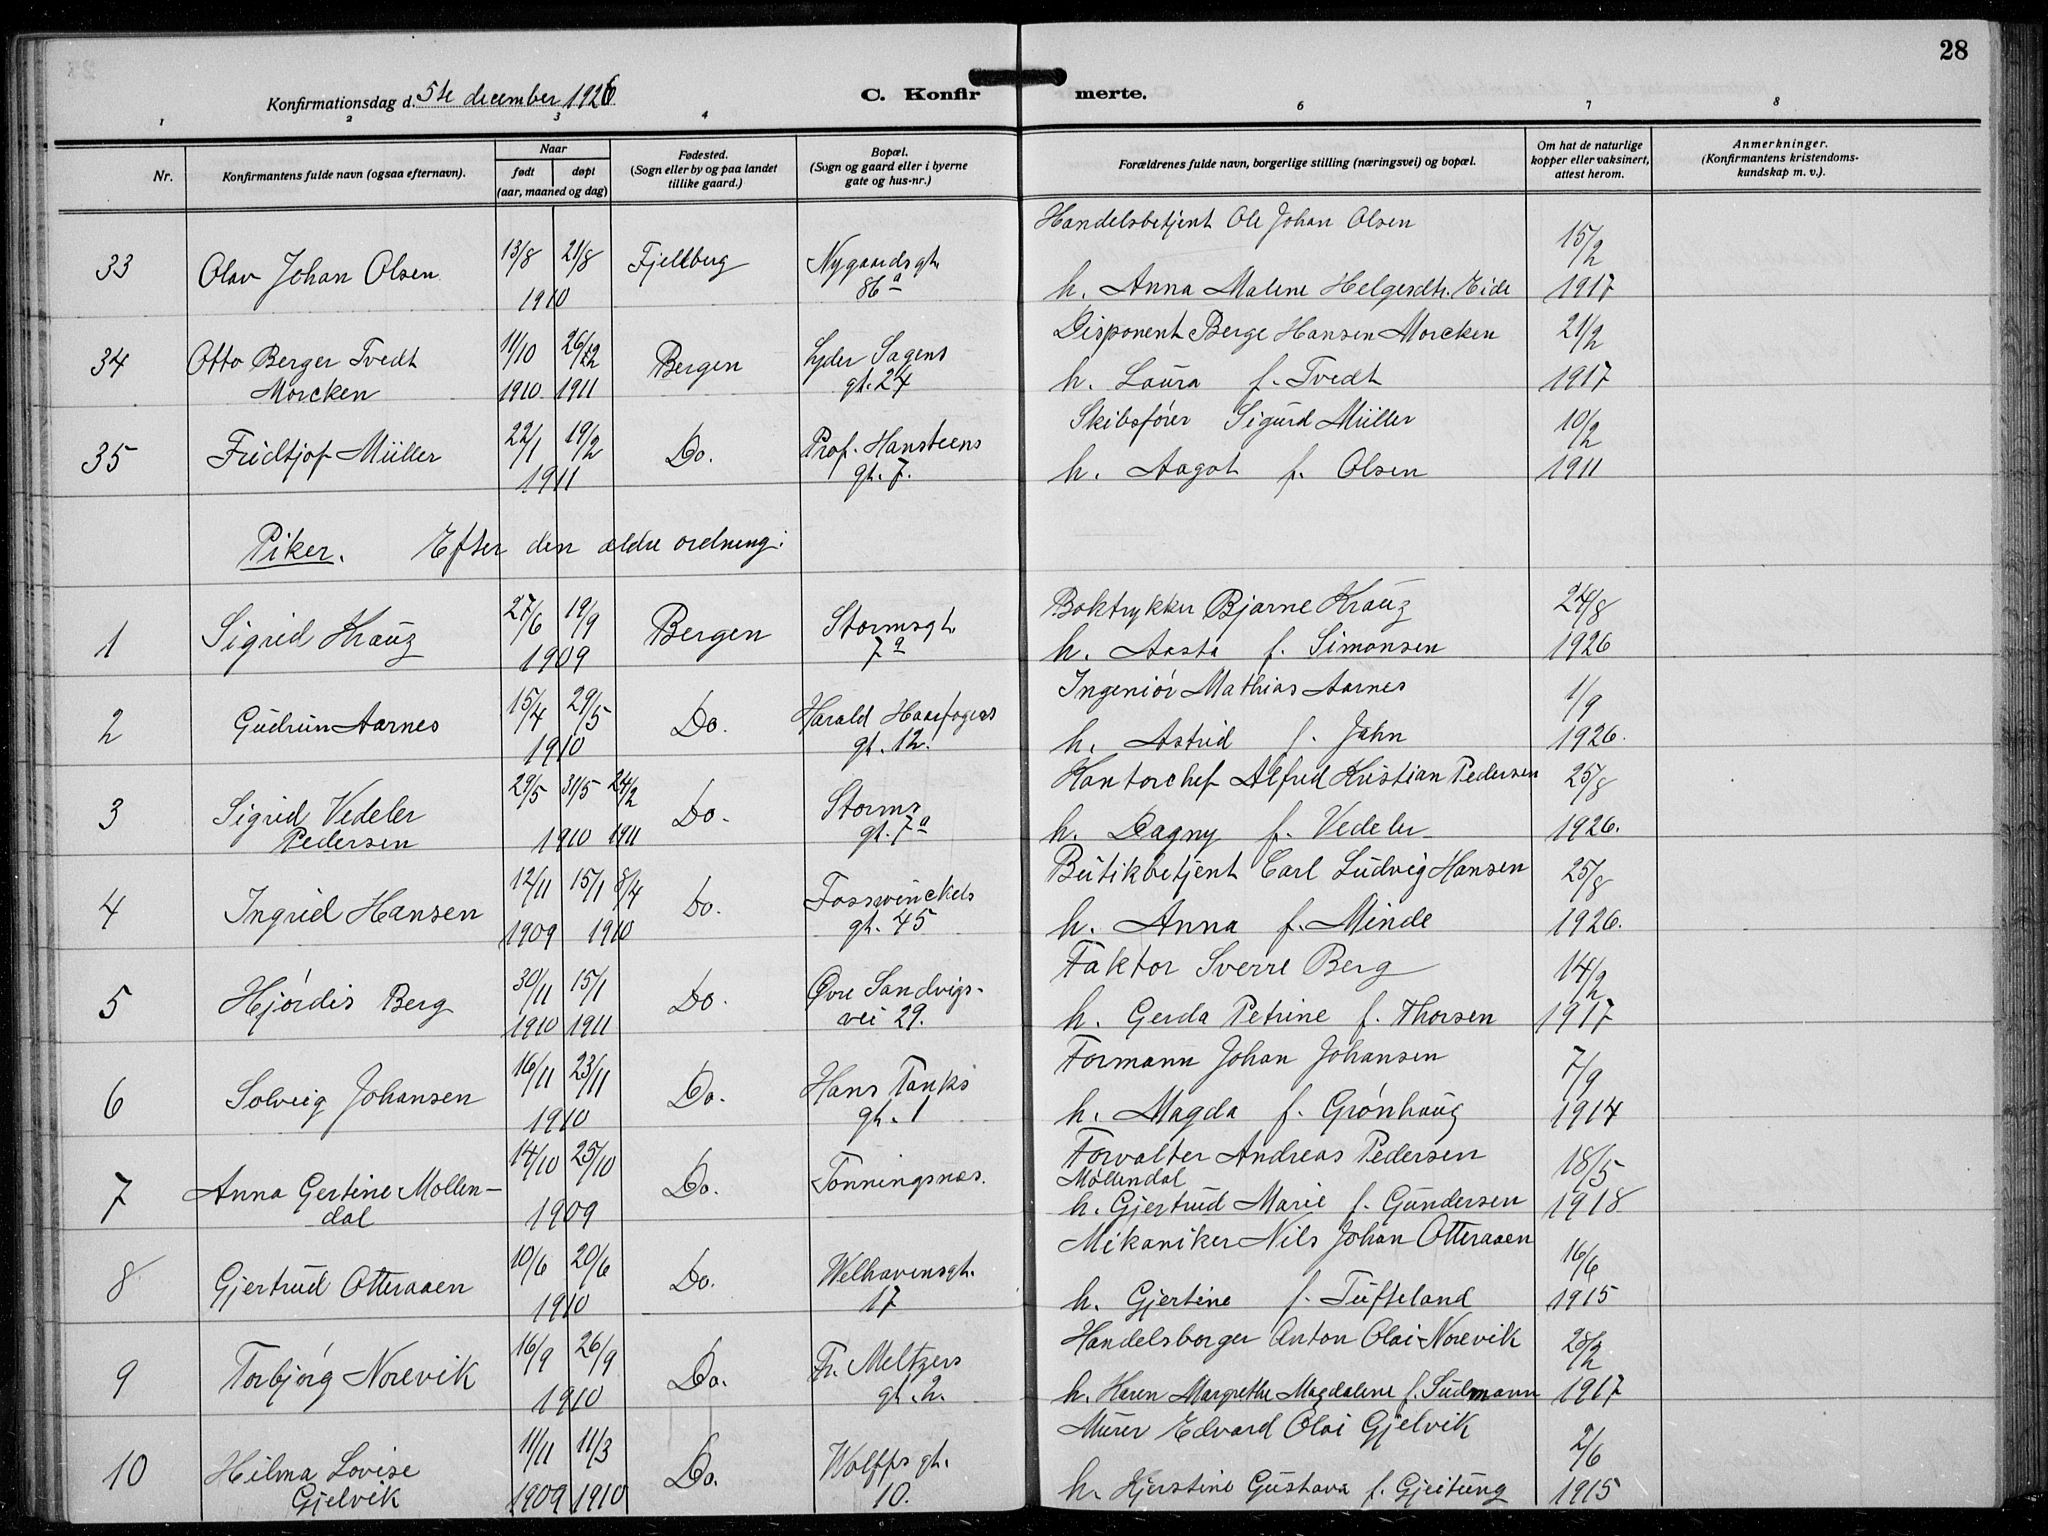 28
Konfirmationsdag d. 5te december 1926
C. Konfirmerte.
1 2 3 4 6 7 8
Nr.
Konfirmantens fulde navn (ogsaa efternavn).
Naar
født døpt
(aar, maaned og dag)
Fødested.
(Sogn eller by og paa landet
tillike gaard.)
Bopæl.
(Sogn og gaard eller i byerne
gate og hus-nr.)
Forældrenes fulde navn, borgerlige stilling (næringsvei) og bopæl.
Om hat de naturlige
kopper eller vaksinert,
attest herom.
Anmerkninger.
(Konfirmantens kristendoms-
kundskap m. v.).
Handelsbetjent Ole Johan Olsen
33 Olav Johan Olsen 13/8 21/8 Fjellberg Nygaardsgt. 15/2
1910 86a h. Anna Malene Helgesdtr. Eide 1917
34 Otto Berger Tvedt 11/10 26/12 Bergen Lyder Sagens Disponent Berge Hansen Morcken 21/2
Morcken 1910 1911 gt. 24 h. Laura f. Tvedt 1917
35 Fridtjof Müller 22/1 19/2 Do. Prof. Hansteens Skibsfører Sigurd Müller 10/2
1911 gt. 7. h. Aagot f. Olsen 1911
Piker. Efter den ældre ordning:
1 Sigrid Krauz 27/6 19/9 Bergen Stormsgt. Boktrykker Bjarne Krauz 24/8
1909 7a h. Aasta f. Simonsen 1926
2 Gudrun Aarnes 15/4 29/5 Do. Harald Haarfagers Ingeniør Mathias Aarnes 1/9
1910 gt. 12. h. Astrid f. Jahn 1926.
3 Sigrid Vedeler 29/5 31/5 24/2 Do. Storms Kontorchef Alfred Kristian Pedersen 25/8
Pedersen 1910 1911 gt. 7a h. Dagny f. Vedeler 1926.
4 Ingrid Hansen 12/11 15/1 8/4 Do. Fosswinckels Butikbetjent Carl Ludvig Hansen 25/8
1909 1910 gt. 45 h. Anna f. Minde 1926.
5 Hjørdis Berg 30/11 15/1 Do. Øvre Sandvigs- Faktor Sverre Berg 14/2
1910 1911 vei 29. h. Gerda Petrine f. Thorsen 1917
6 Solveig Johansen 16/11 23/11 Do. Hans Tanks Formann Johan Johansen 7/9
1910 gt. 1 h. Magda f. Grønhaug 1914
7 Anna Gertine Møllen- 14/10 25/10 Do. Tonningsnæs. Forvalter Andreas Pedersen 18/5
Møllendal
dal 1909 h. Gjertrud Marie f. Gundersen 1918
8 Gjertrud Otteraaen 10/6 20/6 Do. Welhavensgt. Mekaniker Nils Johan Otteraaen 16/6
1910 17 h. Gjertine f. Tufteland 1915
9 Torbjørg Norevik 16/9 26/9 Do. Fr. Meltzers Handelsborger Anton Olai Norevik 28/2
1910 gt. 2. h. Karen Margrethe Magdalene f. Sudmann 1917
10 Hilma Lovise 11/11 11/3 Do. Wolffs gt. Murer Edvard Olai Gjelvik 2/6
Gjelvik 1909 1910 10. h. Kjerstine Gustava f. Gjeitung 1915